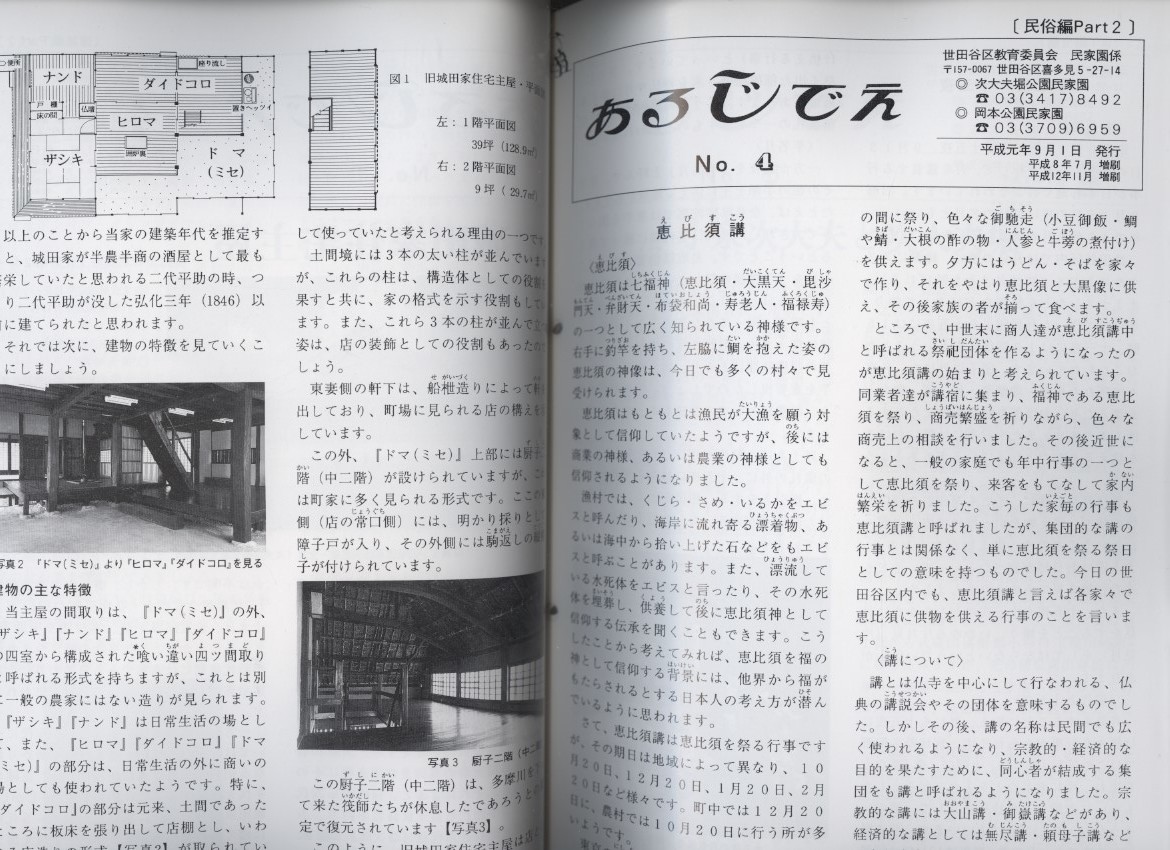 便所
ナンド
戸棚
床の間
仏壇
ザシキ
座り流し
ダイドコロ
置きヘッツイ
ヒロマ
囲炉裏
ドマ
（ミセ）
図1　旧城田家住宅主屋・平
左：1階平面図
39坪（128.9㎡）
右：2階平面図
9坪（ 29.7㎡）
以上のことから当家の建築年代を推定す
と、城田家が半農半商の酒屋として最も
栄していたと思われる二代平助の時、つ
り二代平助が没した弘化三年（1846）以
に建てられたと思われます。
それでは次に、建物の特徴を見ていくこ
にしましょう。
写真2　『ドマ（ミセ）』より『ヒロマ』『ダイドコロ』を見る
建物の主な特徴
当主屋の間取りは、『ドマ（ミセ）』の外、
ザシキ』『ナンド』『ヒロマ』『ダイドコロ』
の四室から構成された喰い違い四ツ間取り
と呼ばれる形式を持ちますが、これとは別
に一般の農家にはない造りが見られます。
『ザシキ』『ナンド』は日常生活の場とし
て、また、『ヒロマ』『ダイドコロ』『ドマ
ミセ）』の部分は、日常生活の外に商いの
場としても使われていたようです。特に、
ダイドコロ』の部分は元来、土間であった
ところに板床を張り出して店棚とし、いわ
して使っていたと考えられる理由の一つです
土間境には3本の太い柱が並んでいま
が、これらの柱は、構造体としての役割
果すと共に、家の格式を示す役割もして
ます。また、これら3本の柱が並んで
姿は、店の装飾としての役割もあったの
しょう。
東妻側の軒下は、船枻造りによって
出しており、町場に見られる店の構えを
しています。
この外、『ドマ（ミセ）』上部には厨子
階（中二階）が設けられていますが、こ
は町家に多く見られる形式です。ここの
側（店の常口側）には、明かり採りとし
障子戸が入り、その外側には駒返しの
子が付けられています。
写真3　厨子二階（中二
この厨子二階（中二階）は、多摩川を
て来た筏師たちが休息したであろうと
定で復元されています【写真3】。
このように、旧城田家住宅主屋は店
〔民俗編Part2〕
あるじでえ
No. 4
世田谷区教育委員会　民家園係
〒157-0067 世田谷区喜多見5-27-14
◎ 次大夫堀公園民家園
☎ 03(3417)8492
◎ 岡本公園民家園
☎ 03(3709)6959
平成元年9月1日　発行
平成8年7月　増刷
平成12年11月　増刷
恵比須講
〈恵比須〉
恵比須は七福神（恵比須・大黒天・毘沙
門天・弁財天・布袋和尚・寿老人・福禄寿）
の一つとして広く知られている神様です。
右手に釣竿を持ち、左脇に鯛を抱えた姿の
恵比須の神像は、今日でも多くの村々で見
受けられます。
恵比須はもともとは漁民が大漁を願う対
象として信仰していたようですが、後には
商業の神様、あるいは農業の神様としても
信仰されるようになりました。
漁村では、くじら・さめ・いるかをエビ
スと呼んだり、海岸に流れ寄る漂着物、あ
るいは海中から拾い上げた石などをもエビ
スと呼ぶことがあります。また、漂流して
いる水死体をエビスと言ったり、その水死
体を埋葬し、供養して後に恵比須神として
信仰する伝承を聞くこともできます。こう
したことから考えてみれば、恵比須を福の
神として信仰する背景には、他界から福が
もたらされるとする日本人の考え方が潜ん
でいるように思われます。
さて、恵比須講は恵比須を祭る行事です
が、その期日は地域によって異なり、10
月20日、12月20日、1月20日、2月
20日など様々です。町中では12月20
日に、農村では10月20日に行う所が多
いようです。
の間に祭り、色々な御馳走（小豆御飯・鯛
や鯖・大根の酢の物・人参と牛蒡の煮付け）
を供えます。夕方にはうどん・そばを家々
で作り、それをやはり恵比須と大黒像に供
え、その後家族の者が揃って食べます。
ところで、中世末に商人達が恵比須講中
と呼ばれる祭祀団体を作るようになったの
が恵比須講の始まりと考られています。
同業者達が講宿に集まり、福神である恵比
須を祭り、商売繁盛を祈りながら、色々な
商売上の相談を行いました。その後近世に
なると、一般の家庭でも年中行事の一つと
して恵比須を祭り、来客をもてなして家内
繁栄を祈りました。こうした家毎の行事も
恵比須講と呼ばれましたが、集団的な講の
行事とは関係なく、単に恵比須を祭る祭日
としての意味を持つものでした。今日の世
田谷区内でも、恵比須講と言えば各家々で
恵比須に供物を供える行事のことを言いま
す。
〈講について〉
講とは仏寺を中心にして行なわれる、仏
典の講説会やその団体を意味するものでし
た。しかしその後、講の名称は民間でも広
く使われるようになり、宗教的・経済的な
目的を果たすために、同心者が結成する集
団をも講と呼ばれるようになりました。宗
教的な講には大山講・御嶽講などがあり、
経済的な講としては無尽講・頼母子講など